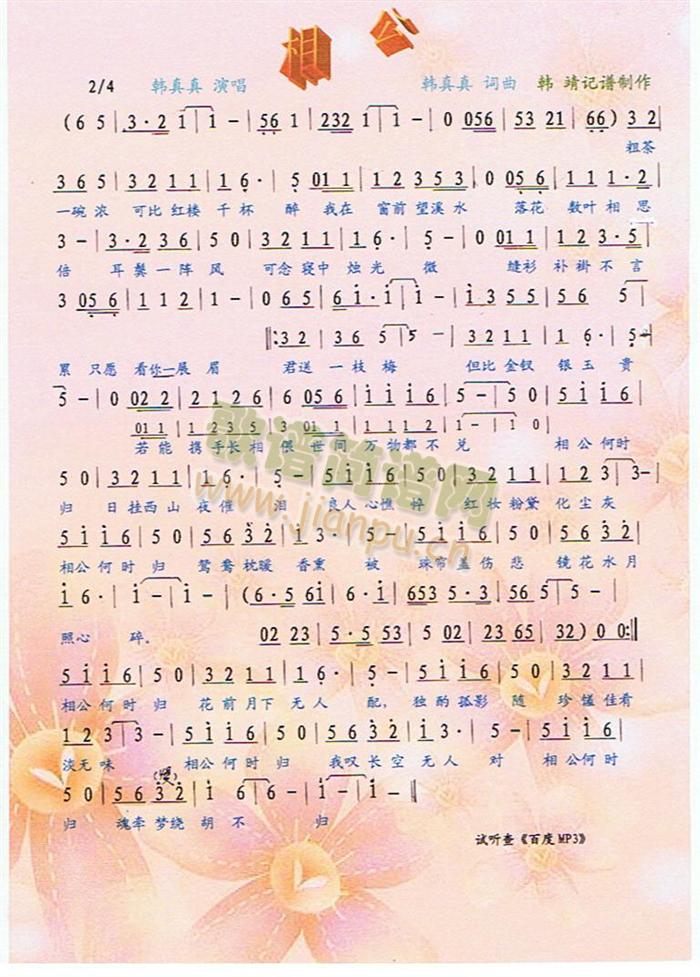 相公
2/4 韩真真 演唱 韩真真 词曲 韩 靖记谱制作
(6 5 | 3·2 i i | i - | 56 1 | 232 i | i - | 0 056 | 53 21 | 66) 3 2 |
粗茶
3 6 5 | 3 2 1 1 | 1 6· | 5 01 1 | 1 2 3 5 3 | 0 05 6 | 1 1 1·2 |
一碗浓 可比红楼千杯 醉 我在 窗前望溪水 落花 数叶相思
3 - | 3·2 3 6 | 5 0 | 3 2 1 1 | 1 6· | 5 - | 0 01 1 | 1 2 3·5 |
倍 耳鬓一阵风 可念寝中烛光 微 缝衫 补褂不言
3 05 6 | 1 1 2 | 1 - | 0 6 5 | 6 i·i | i - | i 3 5 5 | 5 6 5 |
‖: 3 2 | 3 6 5 | 5 - | 3 2 1 1 | 1 6· |
累 只愿 看你一展眉 君送 一枝梅 但比金钗 银玉贵
5 - | 0 02 2 | 2 1 2 6 | 6 05 6 | i i i 6 | 5 - | 5 0 | 5 i i 6 |
01 1 | 1 2 3 5 | 3 05 6 | 1 1 1 2 |
若能 携手长相偎 世间 万物都不兑 相公何时
5 0 | 3 2 1 1 | 1 6· | 5 - | 5 i i 6 | 5 0 | 3 2 1 1 | 1 2 3 | 3 - |
归 日挂西山 夜催 泪 良人心憔悴 红妆粉黛 化尘灰
5 i i 6 | 5 0 | 5 6 3 2 | i 3· | 5 - | 5 i i 6 | 5 0 | 5 6 3 2 |
相公何时归 鸳鸯枕暖 香熏 被 珠帘盖伤悲 镜花水月
i 6· | i - | i - | (6·5 6i | 6· i | 653 5·3 | 56 5 | 5 - |
照心 碎。 02 23 | 5·5 53 | 5 02 | 23 65 | 32) 0 0 :‖
5 i i 6 | 5 0 | 3 2 1 1 | 1 6· | 5 - | 5 i i 6 | 5 0 | 3 2 1 1 |
相公何时归 花前月下 无人 配, 独酌孤影 随 珍馐佳肴
1 2 3 | 3 - | 5 i i 6 | 5 0 | 5 6 3 2 | i 3· | 5 - | 5 i i 6 |
淡无味 相公何时归 我叹长空 无人 对 相公何时
5 0 | 5 6 3 2 | i 6 | 6 - | 6 i | i - | i - ‖
归 魂牵梦绕 胡不 归
试听查《百度MP3》
歌谱简谱网
www.jianpu.cn